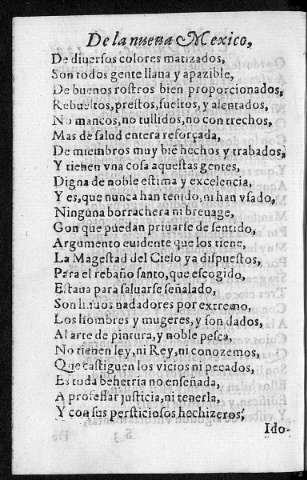 De la nueua Mexico,
De diuersos colores matizados,
Son todos gente llana y apazible,
De buenos rostros bien proporcionados,
Rebueltos, prestos, sueltos, y alentados,
No mancos, no tullidos, no con trechos,
Mas de salud entera reforçada,
De miembros muy biē hechos y trabados,
Y tienen vna cosa aquestas gentes,
Digna de noble estima y excelencia,
Y es, que nunca han tenido, ni han vsado,
Ninguna borrachera ni breuage,
Con que puedan priuarse de sentido,
Argumento euidente que los tiene,
La Magestad del Cielo ya dispuestos,
Para el rebaño santo, que escogido,
Estaua para saluarse señalado,
Son lindos nadadores por extremo,
Los hombres y mugeres, y son dados,
Al arte de pintura, y noble pesca,
No tienen ley, ni Rey, ni conozemos,
Que castiguen los vicios ni pecados,
Es toda behetria no enseñada,
A professar justicia, ni tenerla,
Y con sus persticiosos hechizeros,
Ido-